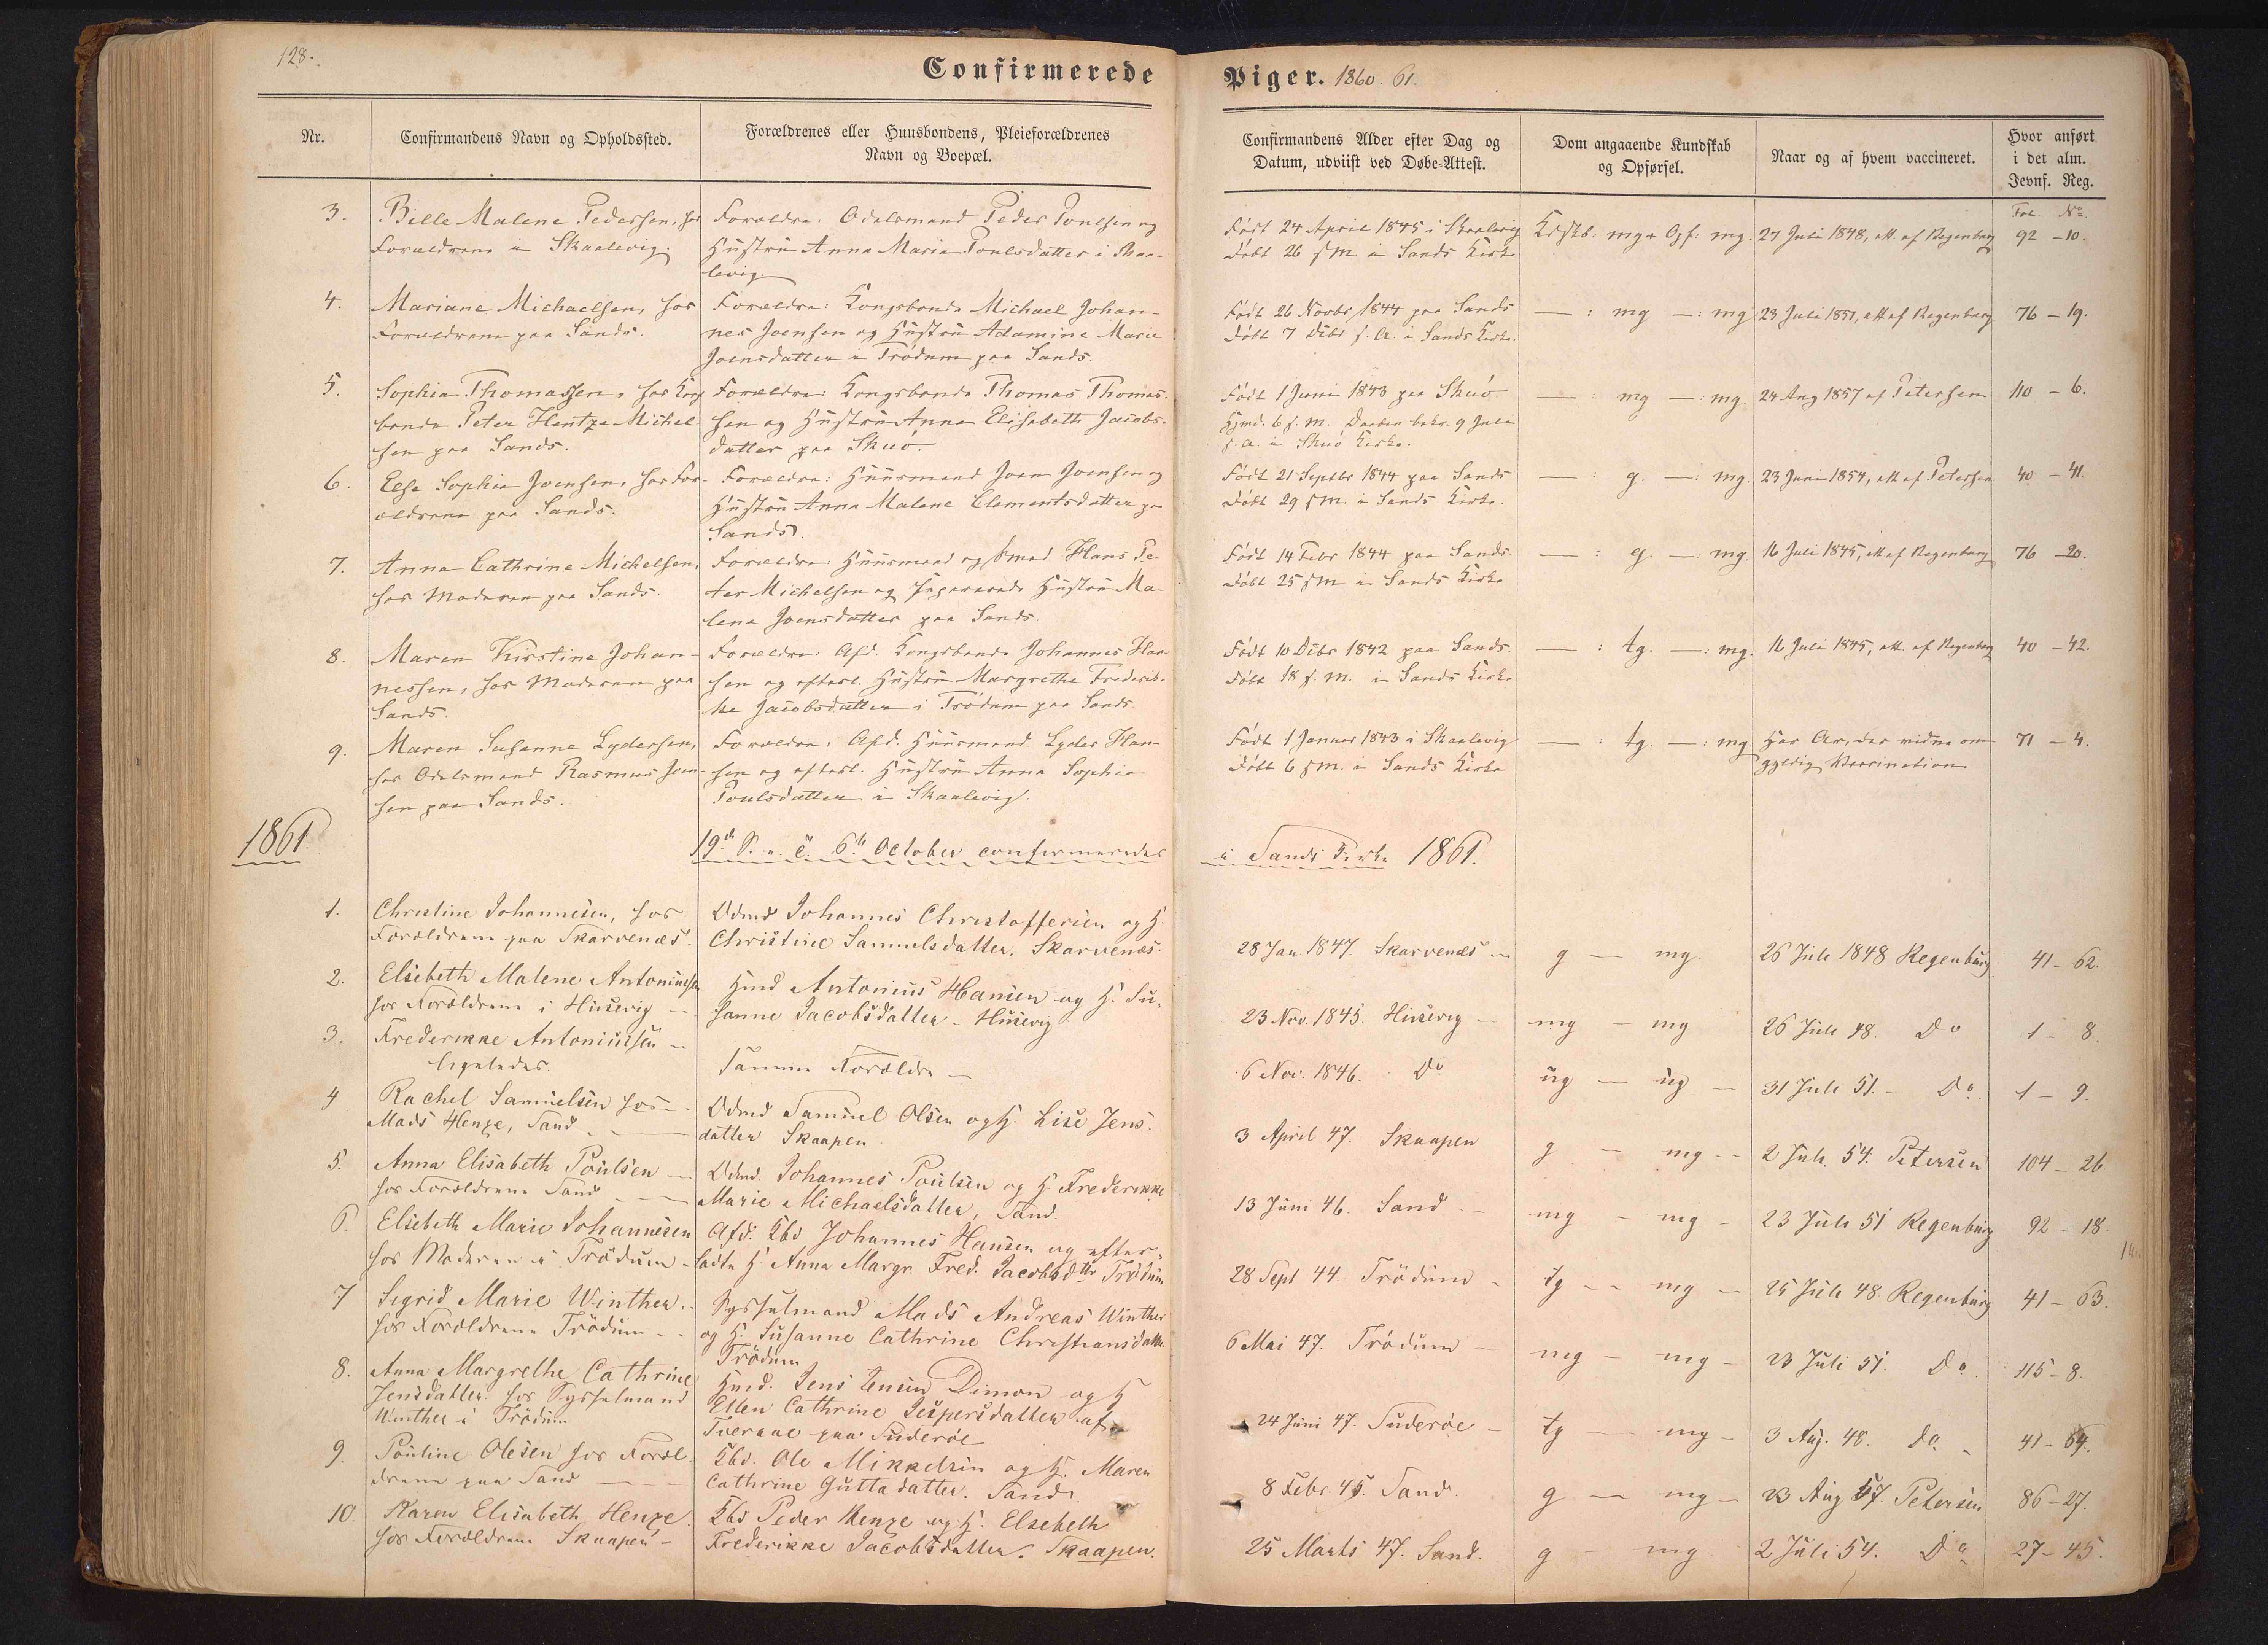 128.
Confirmerede
Piger. 1860. 61.
Nr.
Confirmandens Navn og Opholdssted.
Forældrenes eller Huusbondens, Pleieforældrenes
Navn og Boepæl.
Confirmandens Alder efter Dag og
Datum, udviist ved Døbe-Attest.
Dom angaaende Kundskab
og Opførsel.
Naar og af hvem vaccineret.
Hvor anført
i det alm.
Jevnf. Reg.
Fol. No.
3. Bille Malene Pedersen, hos
Forældrene i Skaalevig.
Forældre: Odelsmand Peder Poulsen og
Hustru Anna Maria Poulsdatter i Skaa-
levig.
Født 24 April 1845 i Skaalevig
døbt 26 s. M. i Sands Kirke
Kdskb: mg+ Opf: mg.
27 Juli 1848, att. af Regenburg
92 – 10.
4. Mariane Michaelsen, hos
Forældrene paa Sands.
Forældre: Kongsbonde Michael Johan-
nes Joensen og Hustru Adamine Marie
Joensdatter i Trödum paa Sands.
Født 26 Novbr 1844 paa Sands
døbt 7 Decbr s. A. i Sands Kirke.
— : mg — : mg
23 Juli 1851, att af Regenburg
76 – 19.
5. Sophia Thomassen, hos Kongs
bonde Peter Hentze Michel-
sen paa Sands.
Forældre: Kongsbonde Thomas Thomas-
sen og Hustru Anna Elisabeth Jacobs-
datter paa Skuö.
Født 1 Juni 1843 paa Skuö
Hjmd. 6 s. M. Daaben bekr. 9 Juli
s. A. i Skuö Kirke.
— : mg — : mg.
24 Aug 1857 af Petersen
110 – 6.
6. Else Sophia Joensen, hos For-
ældrene paa Sands.
Forældre: Huusmand Joen Joensen og
Hustru Anna Malene Clementsdatter paa
Sands.
Født 21 Septbr 1844 paa Sands
døbt 29 s M. i Sands Kirke.
— : g. — : mg.
23 Juni 1854, att af Petersen
40 – 41.
7. Anna Cathrine Michelsen,
hos Moderen paa Sands.
Forældre: Huusmand og Smed Hans Pe-
ter Michelsen og separerede Hustru Ma-
lene Joensdatter paa Sands.
Født 14 Febr 1844 paa Sands.
døbt 25 s M i Sands Kirke
— : g. — : mg.
16 Juli 1845, att af Regenburg
76 – 20.
8. Maren Kirstine Johan-
nessen, hos Moderen paa
Sands.
Forældre: Afd. Kongsbonde Johannes Han-
sen og efterl. Hustru Margrethe Frederik-
ke Jacobsdatter i Trödum paa Sands
Født 10 Decbr 1842 paa Sands.
døbt 18 s. M. i Sands Kirke
— : tg. — : mg.
16 Juli 1845, att. af Regenburg
40 – 42.
9. Maren Susanne Lydersen,
hos Odelsmand Rasmus Joen-
sen paa Sands.
Forældre: Afd. Huusmand Lyder Han-
sen og efterl. Hustru Anna Sophia
Poulsdatter i Skaalevig.
Født 1 Januar 1843 i Skaalevig
døbt 6 s M. i Sands Kirke
— : tg. — : mg
Har Ar, der vidne om
gyldig Vaccination
71 – 4.
1861.
19de S. e. T. 6te October confirmeredes
i Sands Kirke 1861.
1. Christine Johannesen, hos
Forældrene paa Skarvenæs.
Odmd Johannes Christoffersen og H.
Christine Samuelsdatter. Skarvenæs.
28 Jan 1847. Skarvenæs –
g — mg
26 Juli 1848 Regenburg
41 – 62.
2. Elsebeth Malene Antoniussen
hos Forældrene i Husevig –
Hmd Antonius Hansen og H. Su-
sanne Jacobsdatter – Husevig
23 Nov. 1845. Husevig –
mg — mg
26 Juli 48. Do
1 – 8.
3. Frederikke Antoniussen –
ligeledes.
Samme Forældre –
6 Nov. 1846. Do
ug — ug —
31 Juli 51. – Do
1 – 9.
4 Rachel Samuelsen hos –
Mads Henze, Sand –
Odmd Samuel Olsen og H. Lise Jens-
datter Skaapen
3 April 47. Skaapen
g — mg –
2 Juli. 54. Petersen
104 – 26
5. Anna Elisabeth Poulsen –
hos Forældrene Sand –
Odmd. Johannes Poulsen og H Frederikke
Marie Michaelsdatter, Sand.
13 Juni 46. Sand –
mg – mg –
23 Juli 51 Regenburg
92 – 18.
6. Elsebeth Marie Johannesen
hos Moderen i Trödum –
Afd. Kbd Johannes Hansen og efter-
ladte H. Anna Margr. Fred. Jacobsdtr Trödum
28 Sept 44. Trödum –
tg – – mg –
25 Juli 48. Regenburg
41 – 63.
7 Sigrid Marie Winther. –
hos Forældrene Trödum –
Sysselmand Mads Andreas Winther
og H. Susanne Cathrine Christiansdatter
Trödum
6 Mai 47. Trödum –
mg – mg –
23 Juli 51. Do.
115 – 8.
8. Anna Margrethe Cathrine
Jensdatter hos Sysselmand
Winther i Trödum
Hmd. Jens Jensen Dimon og H
Ellen Cathrine Jespersdatter af
Tveraae paa Suderöe
24 Juni 47. Suderöe –
tg — mg –
3 Aug. 48. Do. –
41 – 64.
9. Pouline Olesen hos Foræl-
drene paa Sand –
Kbd. Ole Mikkelsen og H. Maren
Cathrine Guttadatter. Sand.
8 Febr. 45. Sand.
g — mg –
23 Aug 57. Petersen
86 – 27.
10. Karen Elisabeth Henze.
hos Forældrene Skaapen –
Kbd Peder Henze og H. Elsebeth
Frederikke Jacobsdatter. Skaapen.
25 Marts 47. Sand.
g — mg
2 Juli 54. Do
27 – 45.